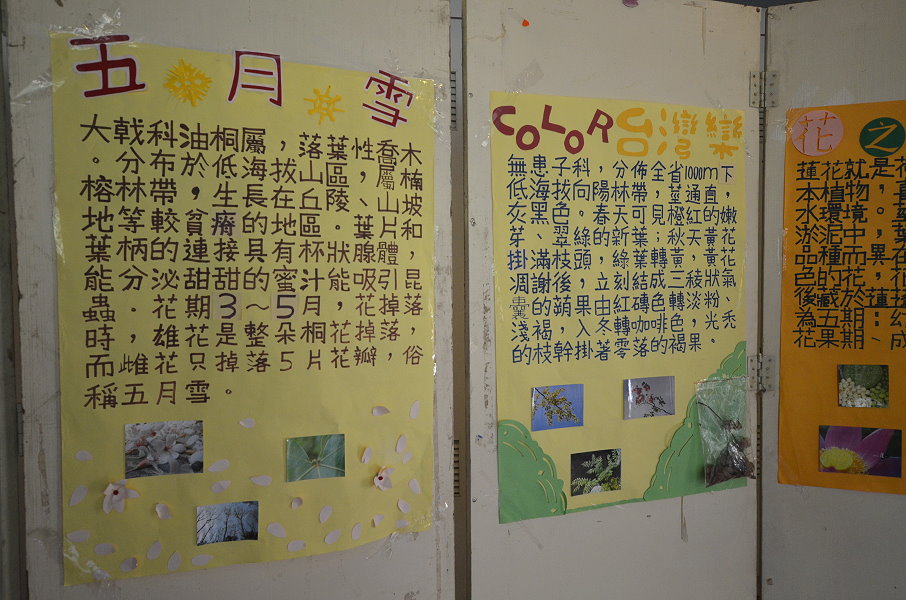 五月雪
大戟科油桐屬,落葉性喬木
。分布於低海拔山區,屬楠
榕林帶,生長在丘陵、山坡
地等較貧瘠的地區。葉片和
葉柄的連接具有杯狀腺體,
能分泌甜甜的蜜汁能吸引昆
蟲。花期3~5月,花掉落
時,雄花是整朵桐花掉落,
而雌花只掉落5片花瓣,俗
稱五月雪。
COLOR台灣欒
無患子科,分佈全省1000m下
低海拔向陽林帶,莖通直,
灰黑色。春天可見橙紅的嫩
芽、翠綠的新葉;秋天,黃花
掛滿枝頭,綠葉轉黃,黃花
凋謝後,立刻結成三稜狀氣
囊的蒴果由紅磚色轉淡粉、
淺褐,入冬轉咖啡色,光禿
的枝幹掛著零落的褐果。
花之
蓮花就是
本植物,
水環境。
淤泥中,
品種而異,
色的花,花
後藏於蓮
為五期:幻
花果期、成